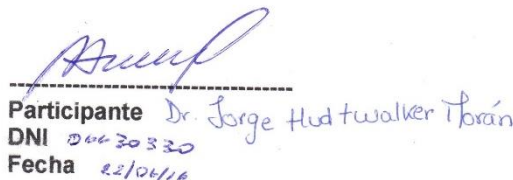 Participante Dr. Jorge Hudtwalker Morán
DNI
Fecha 22/06/16